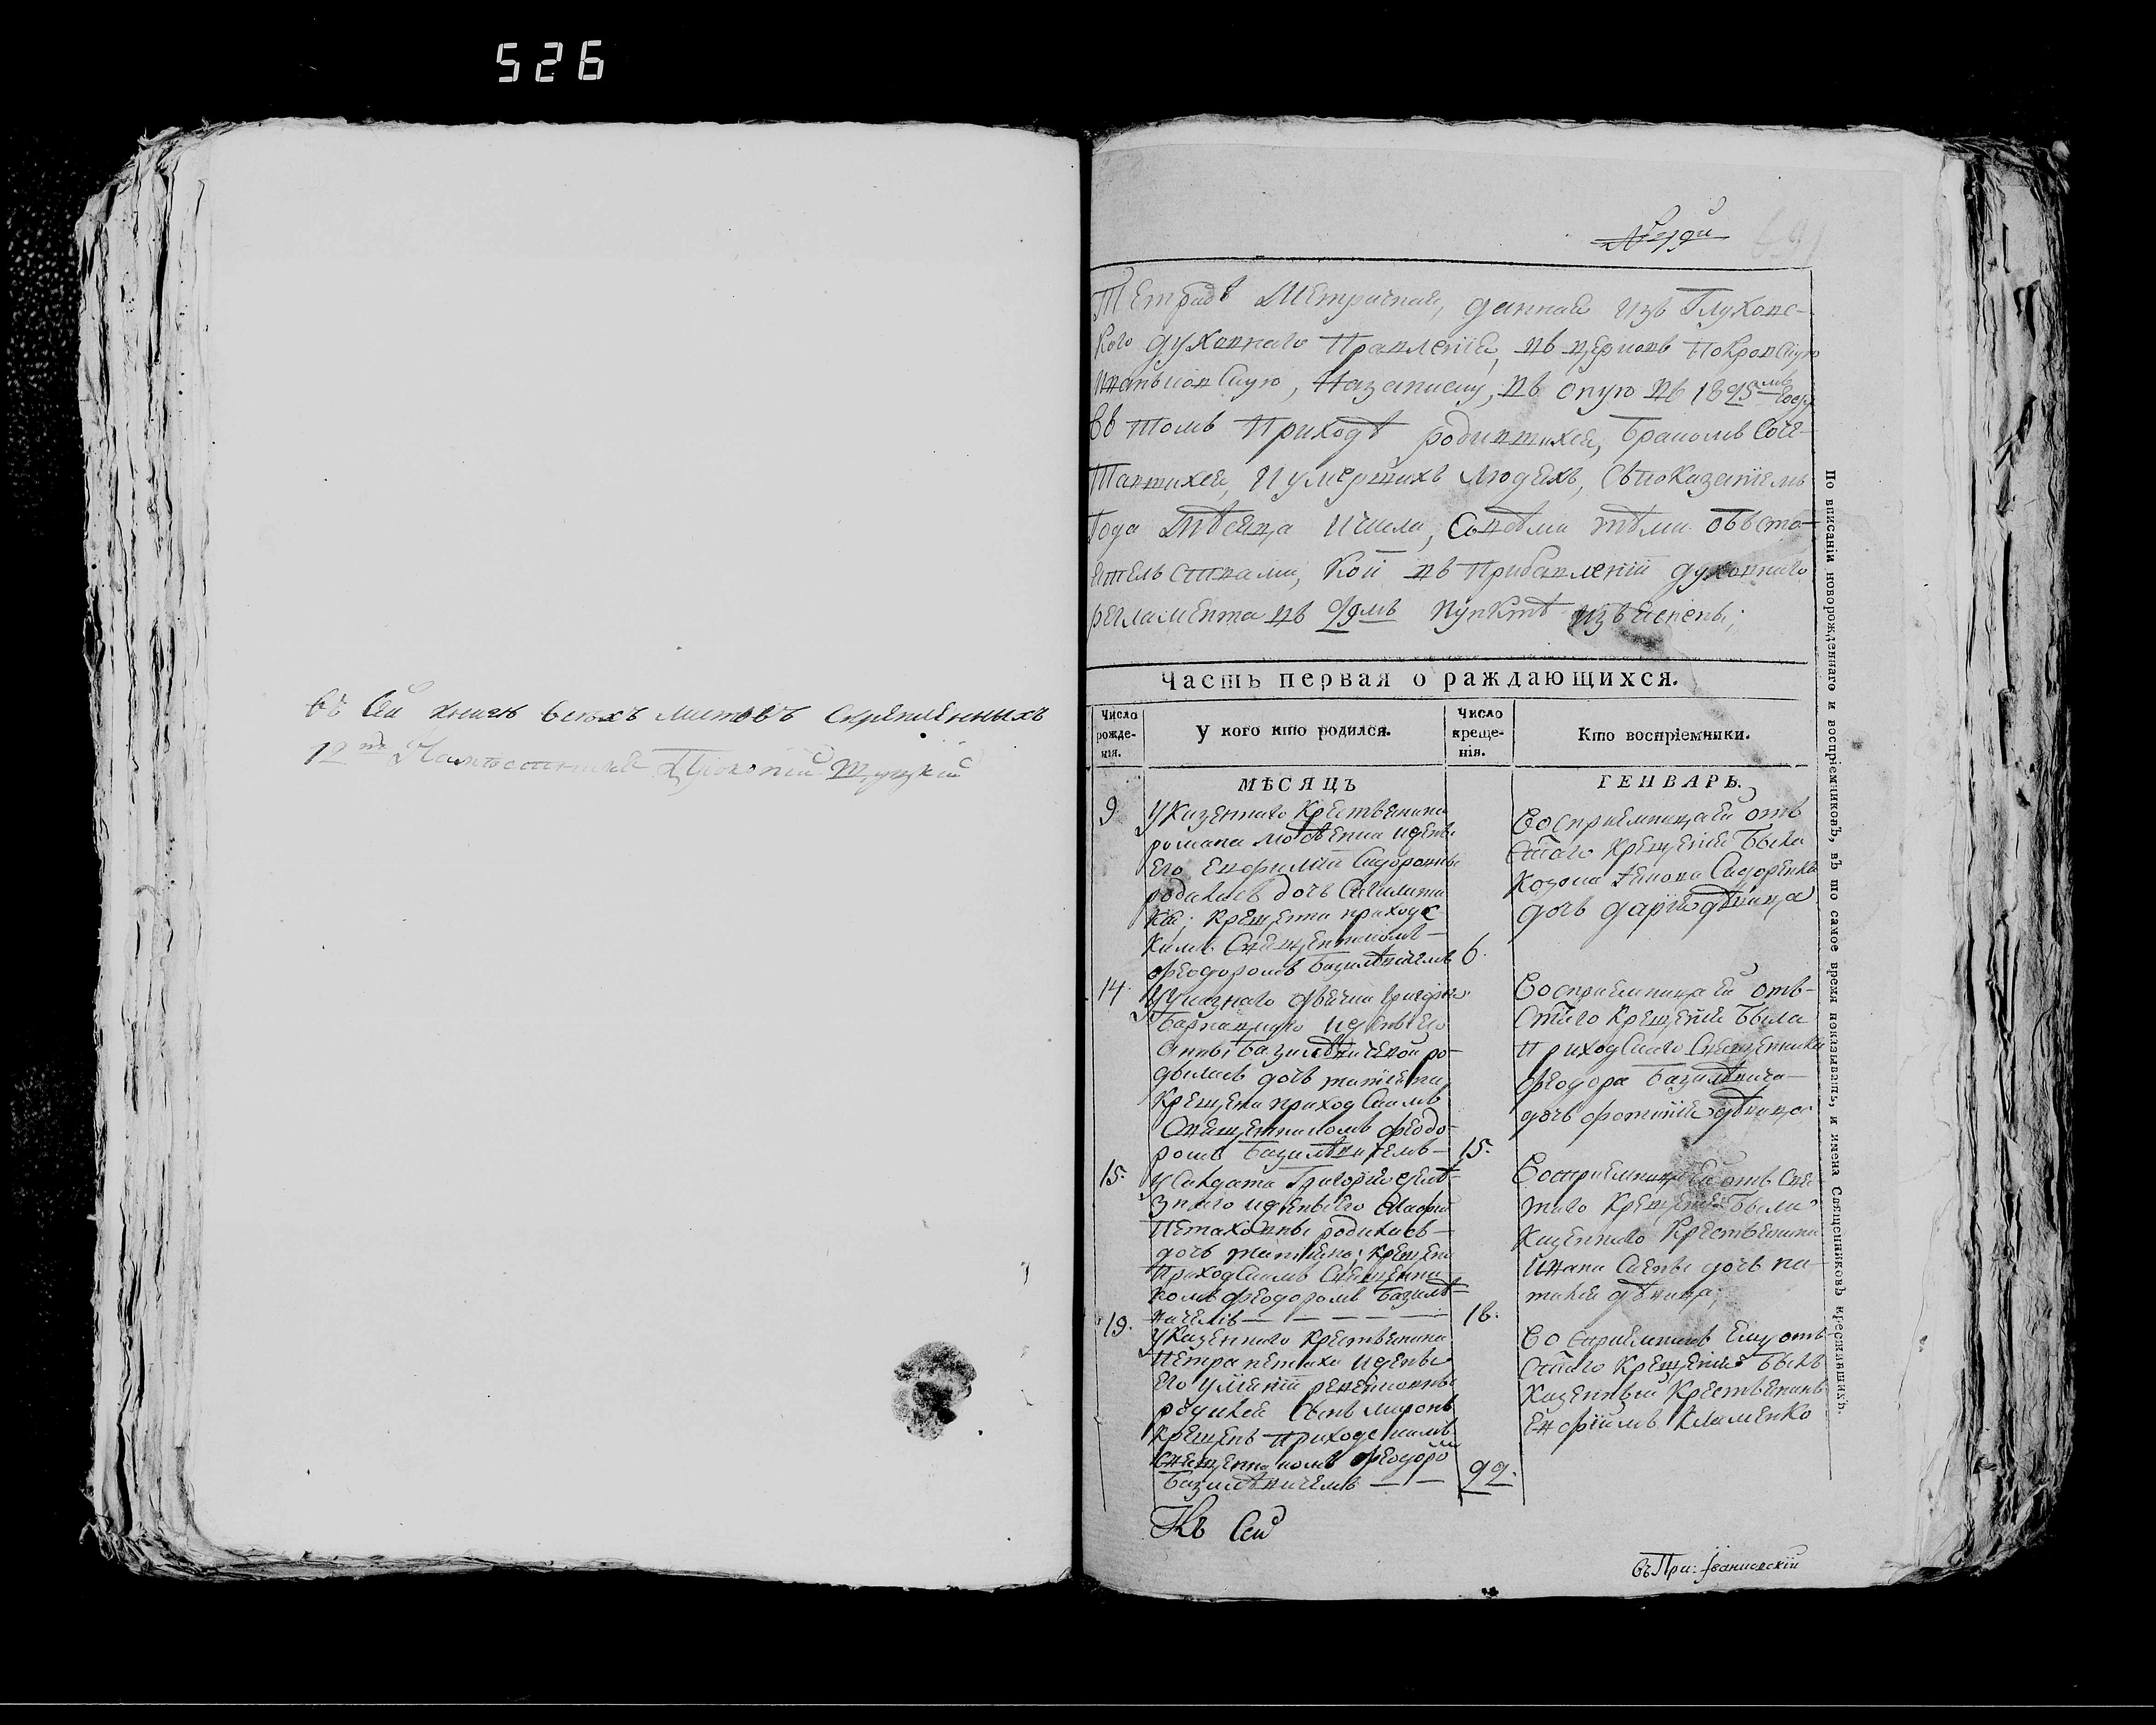 526
въ сей книгѣ всѣхъ листовъ скрѣпленныхъ
12 Прокопій
691
Тетрадь Метричная, данная изъ Глуховс-
кого духовнаго Правленія, въ церковь Покровскую
Назаписку, въ оную въ 1825мъ году
въ томъ Приходѣ родившихся, бракомъ соче-
тавшихся, и умершихъ людехъ, съ показаніемъ
года Мѣсяца и числа, со всѣми тѣми обсто-
ятельствами, кои въ Прибавленіи духовнаго
регламента въ 29мъ пунктѣ изъяснены;
Часть первая о раждающихся.
Число рожде-нія.
У кого кто родился.
Число креще-нія.
Кто воспріемники.
МѢСЯЦЪ
ГЕНВАРЬ.
9
У казеннаго крестьянина
романа и жены
его Евфиміи Сидоровны
родилась дочь
крещена приходс
кимъ священникомъ
феодоромъ Базилѣвичемъ
6.
Восприемницаей отъ
стаго крещенія была
козака Сидоренка
дочь дарія дѣвица
14.
У указнаго дьячка григорія
и жены его
анны Базилѣвичевой ро-
дилась дочь татіана
крещена приходскимъ
священникомъ феодо-
ромъ Базилѣвичемъ
15.
Восприемницаей отъ
стаго крещенія была
приходскаго священника
феодора Базилѣвича
дочь фотинія дѣвица
15.
У солдата Григорія
и жены его Марfіи
родилась
дочь татіана; крещена
приходскимъ священни
комъ феодоромъ Базилѣ
вичемъ
18.
Восприемницей отъ свя
таго крещенія была
казеннаго крестьянина
Ивана дочь на
талія дѣвица;
19.
У казеннаго крестьянина
Петра и жены
его
родился сынъ миронъ
крещенъ приходскимъ
священникомъ феодоромъ
Базилѣвичемъ
22.
Восприемникъ ему отъ
стаго крещенія былъ
казенный крестьянинъ
Евфимъ Клименко
Къ Сей
въ При: Іваницкій
По вписаніи новорожденнаго и воспріемниковъ, въ то самое время показывать, и имена Священниковъ крестившихъ.